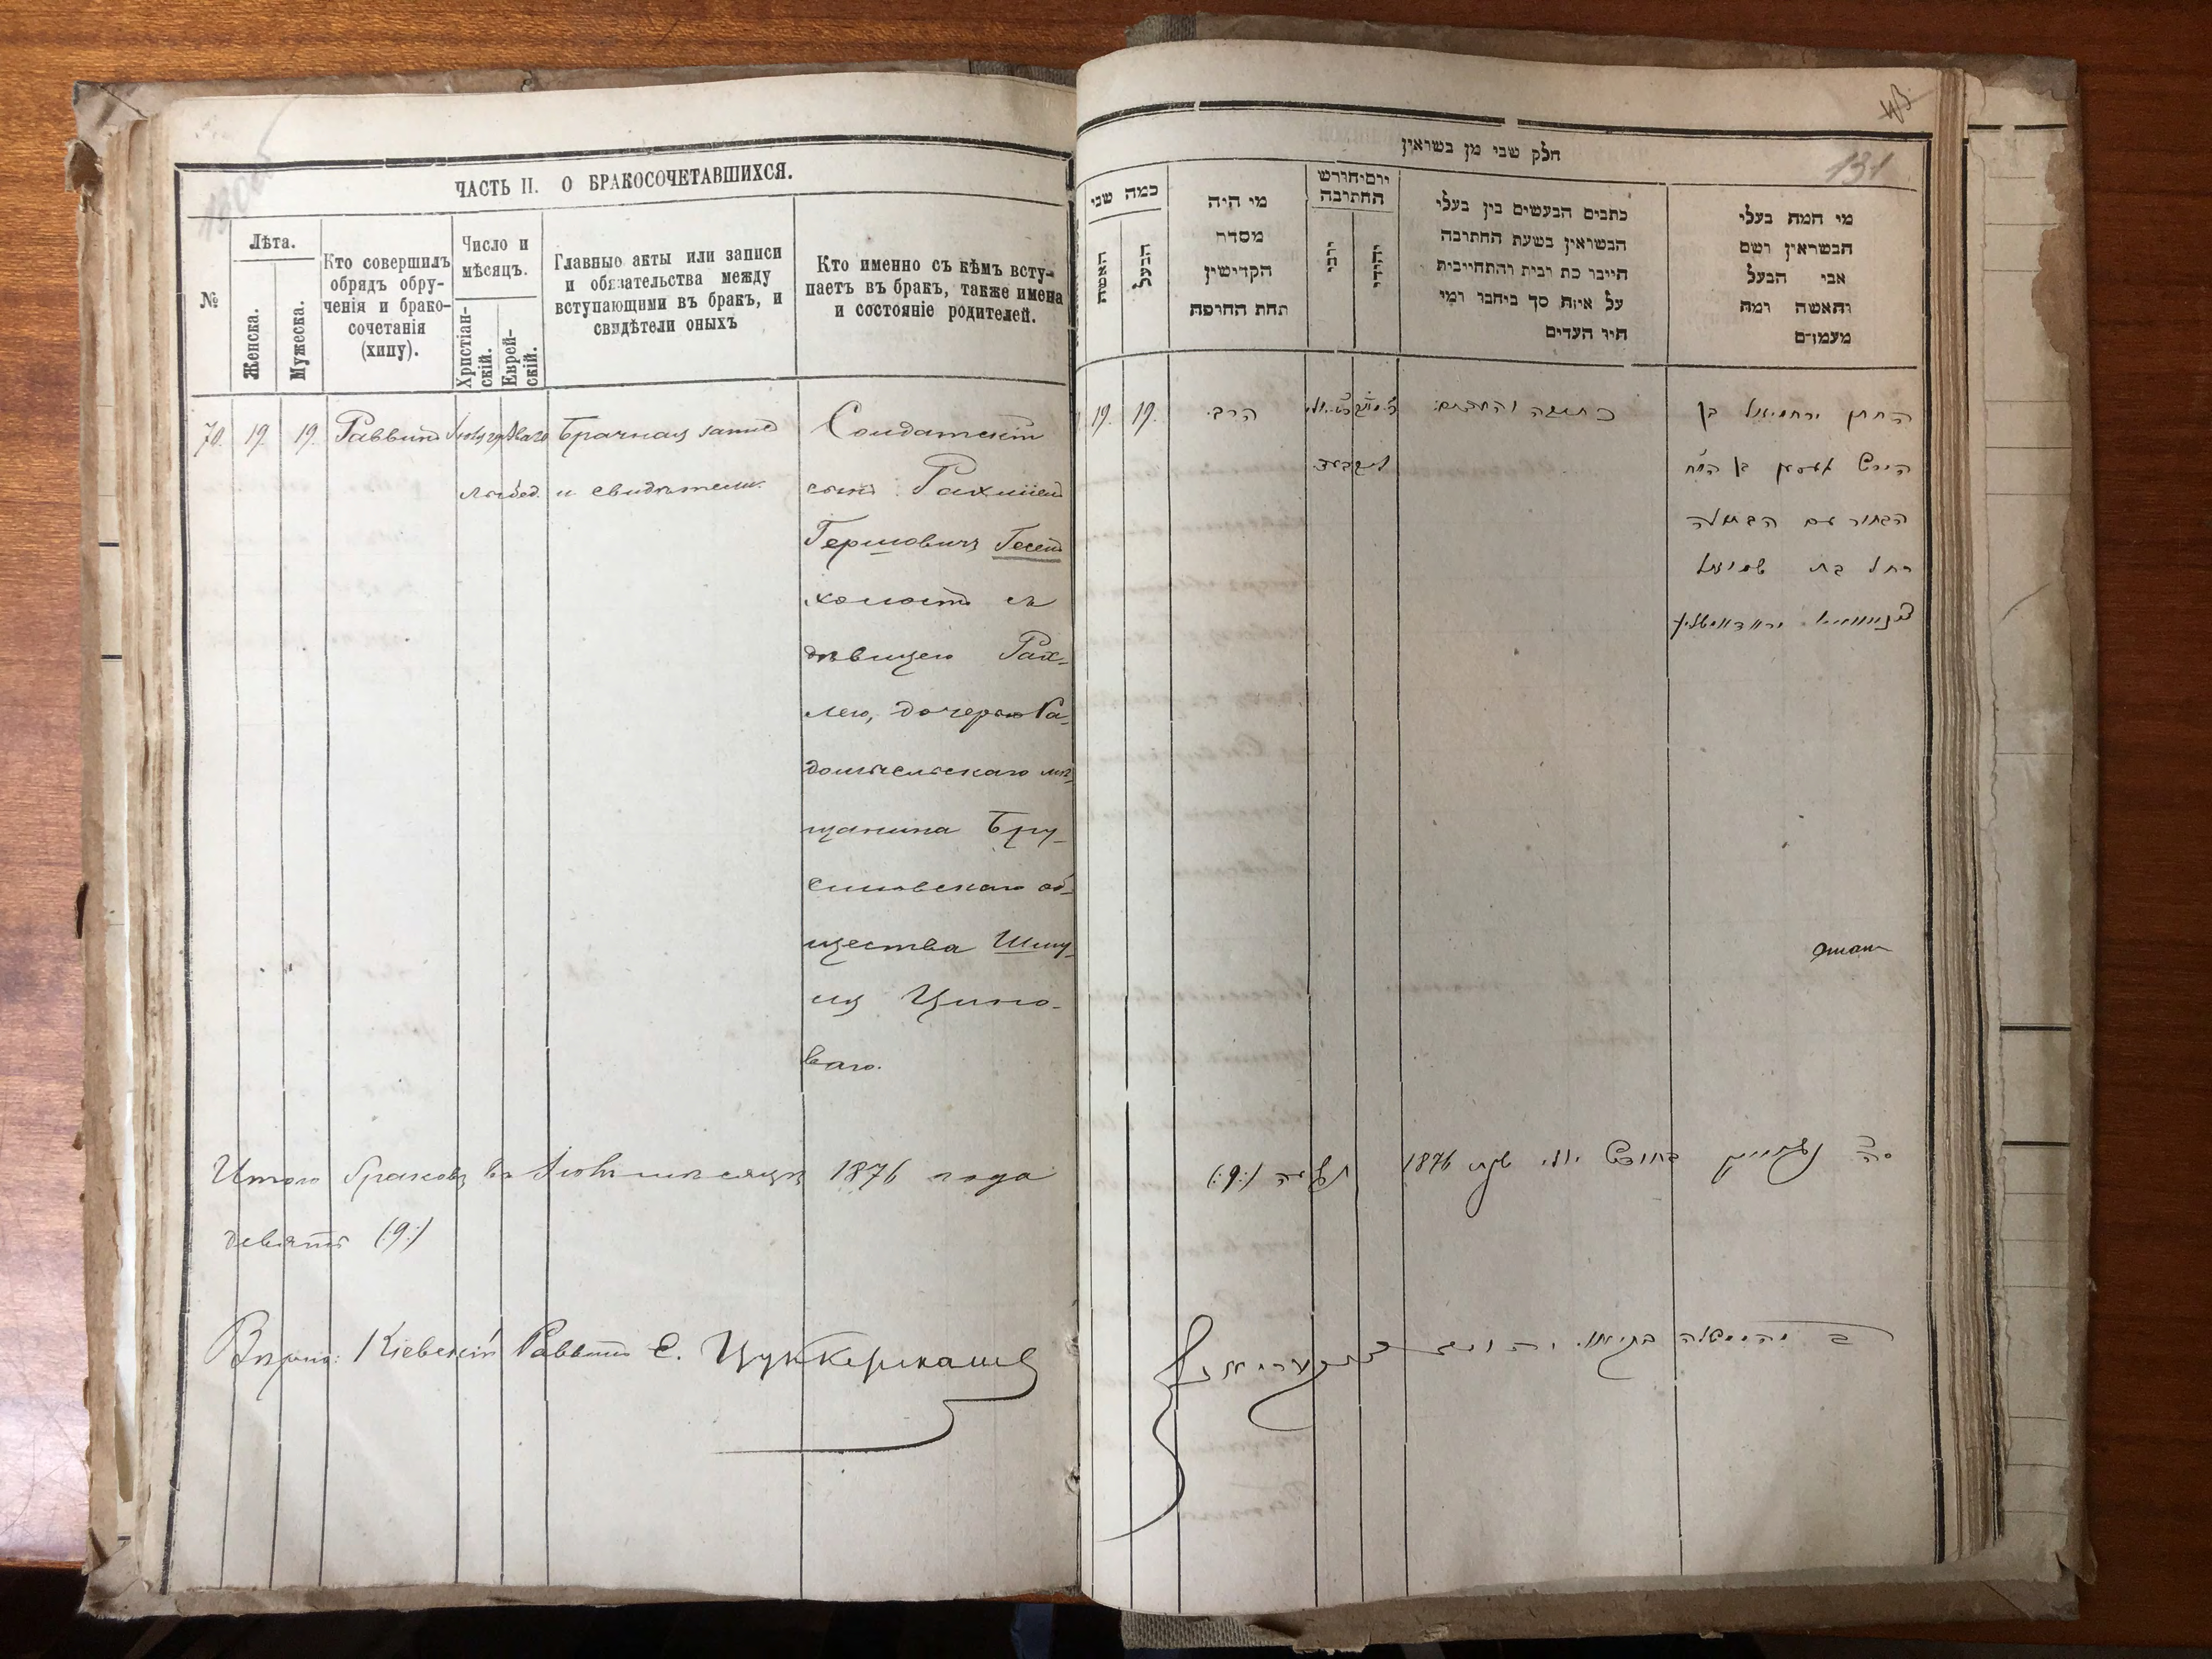 ЧАСТЬ II. О БРАКОСОЧЕТАВШИХСЯ.
№
Лѣта.
Женска.
Мужеска.
Кто совершилъ
обрядъ обру-
ченія и брако-
сочетанія
(хипу).
Число и
мѣсяцъ.
Христіан-
скій.
Еврей-
скій.
Главные акты или записи
и обязательства между
вступающими въ бракъ, и
свидѣтели оныхъ
Кто именно съ кѣмъ всту-
паетъ въ бракъ, также имена
и состояніе родителей.
70. 19. 19. Раввинъ
Брачная запись
и свидѣтели.
Солдатскій
сынъ Рахміель
Гершовичъ Гесель
холостъ съ
дѣвицею Рах-
лею, дочерью Ра-
домысльскаго мѣ-
щанина Бру-
силовскаго об-
щества Шму-
ля Цино-
ваго.
Итого браковъ въ Іюлѣ мѣсяцѣ 1876 года
девять (:9:)
Вѣрно: Кіевскій Раввинъ Е. Цуккерманъ
131
חלק שני מן נשואין
כמה שני
האשה
הבעל
מי היה
מסדר
הקדישין
תחת החופה
יום וחודש
החתונה
כתבים הנעשים בין בעלי
הנשואין בשעת החתונה
חיובי כת ובית והתחייבות
על איזה סך ביחנו ומי
היו העדים
מי המה בעלי
הנשואין ושם
אבי הבעל
והאשה ומה
מעמדם
19. 19. הרב.
כתובה והעדים.
החתן ירחמיאל בן
הירש
הבחור עם הבתולה
רחל בת שמואל
בחודש יולי שנת 1876
תשעה (:9:)